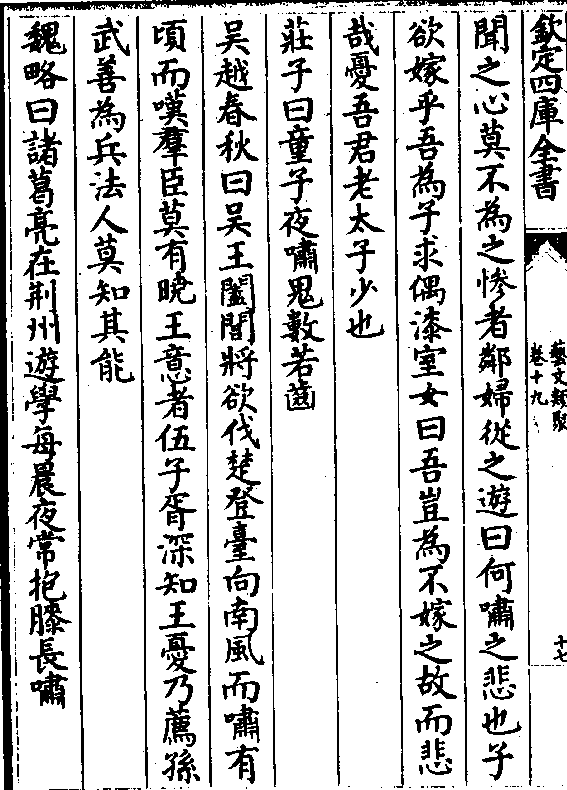 欽定四庫全書
藝文類聚
卷十九
十七
聞之心莫不為之慘者鄰婦從之遊曰何嘯之悲也子
欲嫁乎吾為子求偶漆室女曰吾豈為不嫁之故而悲
哉憂吾君老太子少也
莊子曰童子夜嘯鬼數若齒
吳越春秋曰吳王闔閭將欲伐楚登臺向南風而嘯有
頃而嘆羣臣莫有曉王意者伍子胥深知王憂乃薦孫
武善為兵法人莫知其能
魏略曰諸葛亮在荆州遊學每晨夜常抱膝長嘯